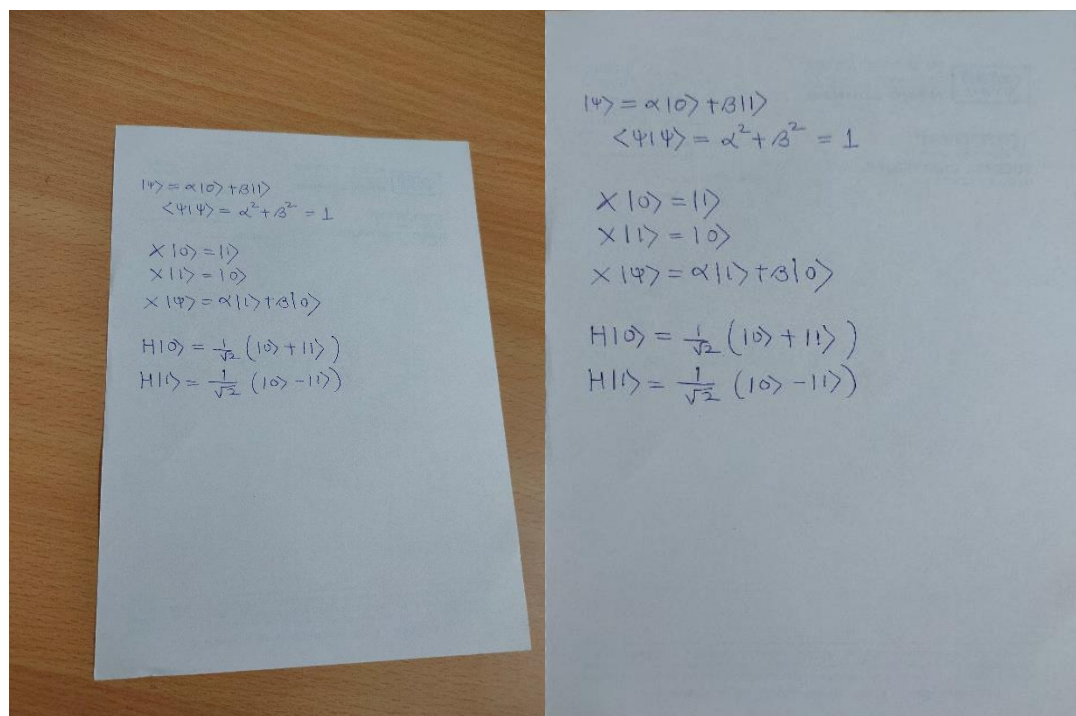 |ψ> = α|0> + β|1>
<ψ|ψ> = α² + β² = 1
X|0> = |1>
X|1> = |0>
X|ψ> = α|1> + β|0>
H|0> = 1/√2 (|0> + |1>)
H|1> = 1/√2 (|0> - |1>)
|ψ> = α|0> + β|1>
<ψ|ψ> = α² + β² = 1
X|0> = |1>
X|1> = |0>
X|ψ> = α|1> + β|0>
H|0> = 1/√2 (|0> + |1>)
H|1> = 1/√2 (|0> - |1>)